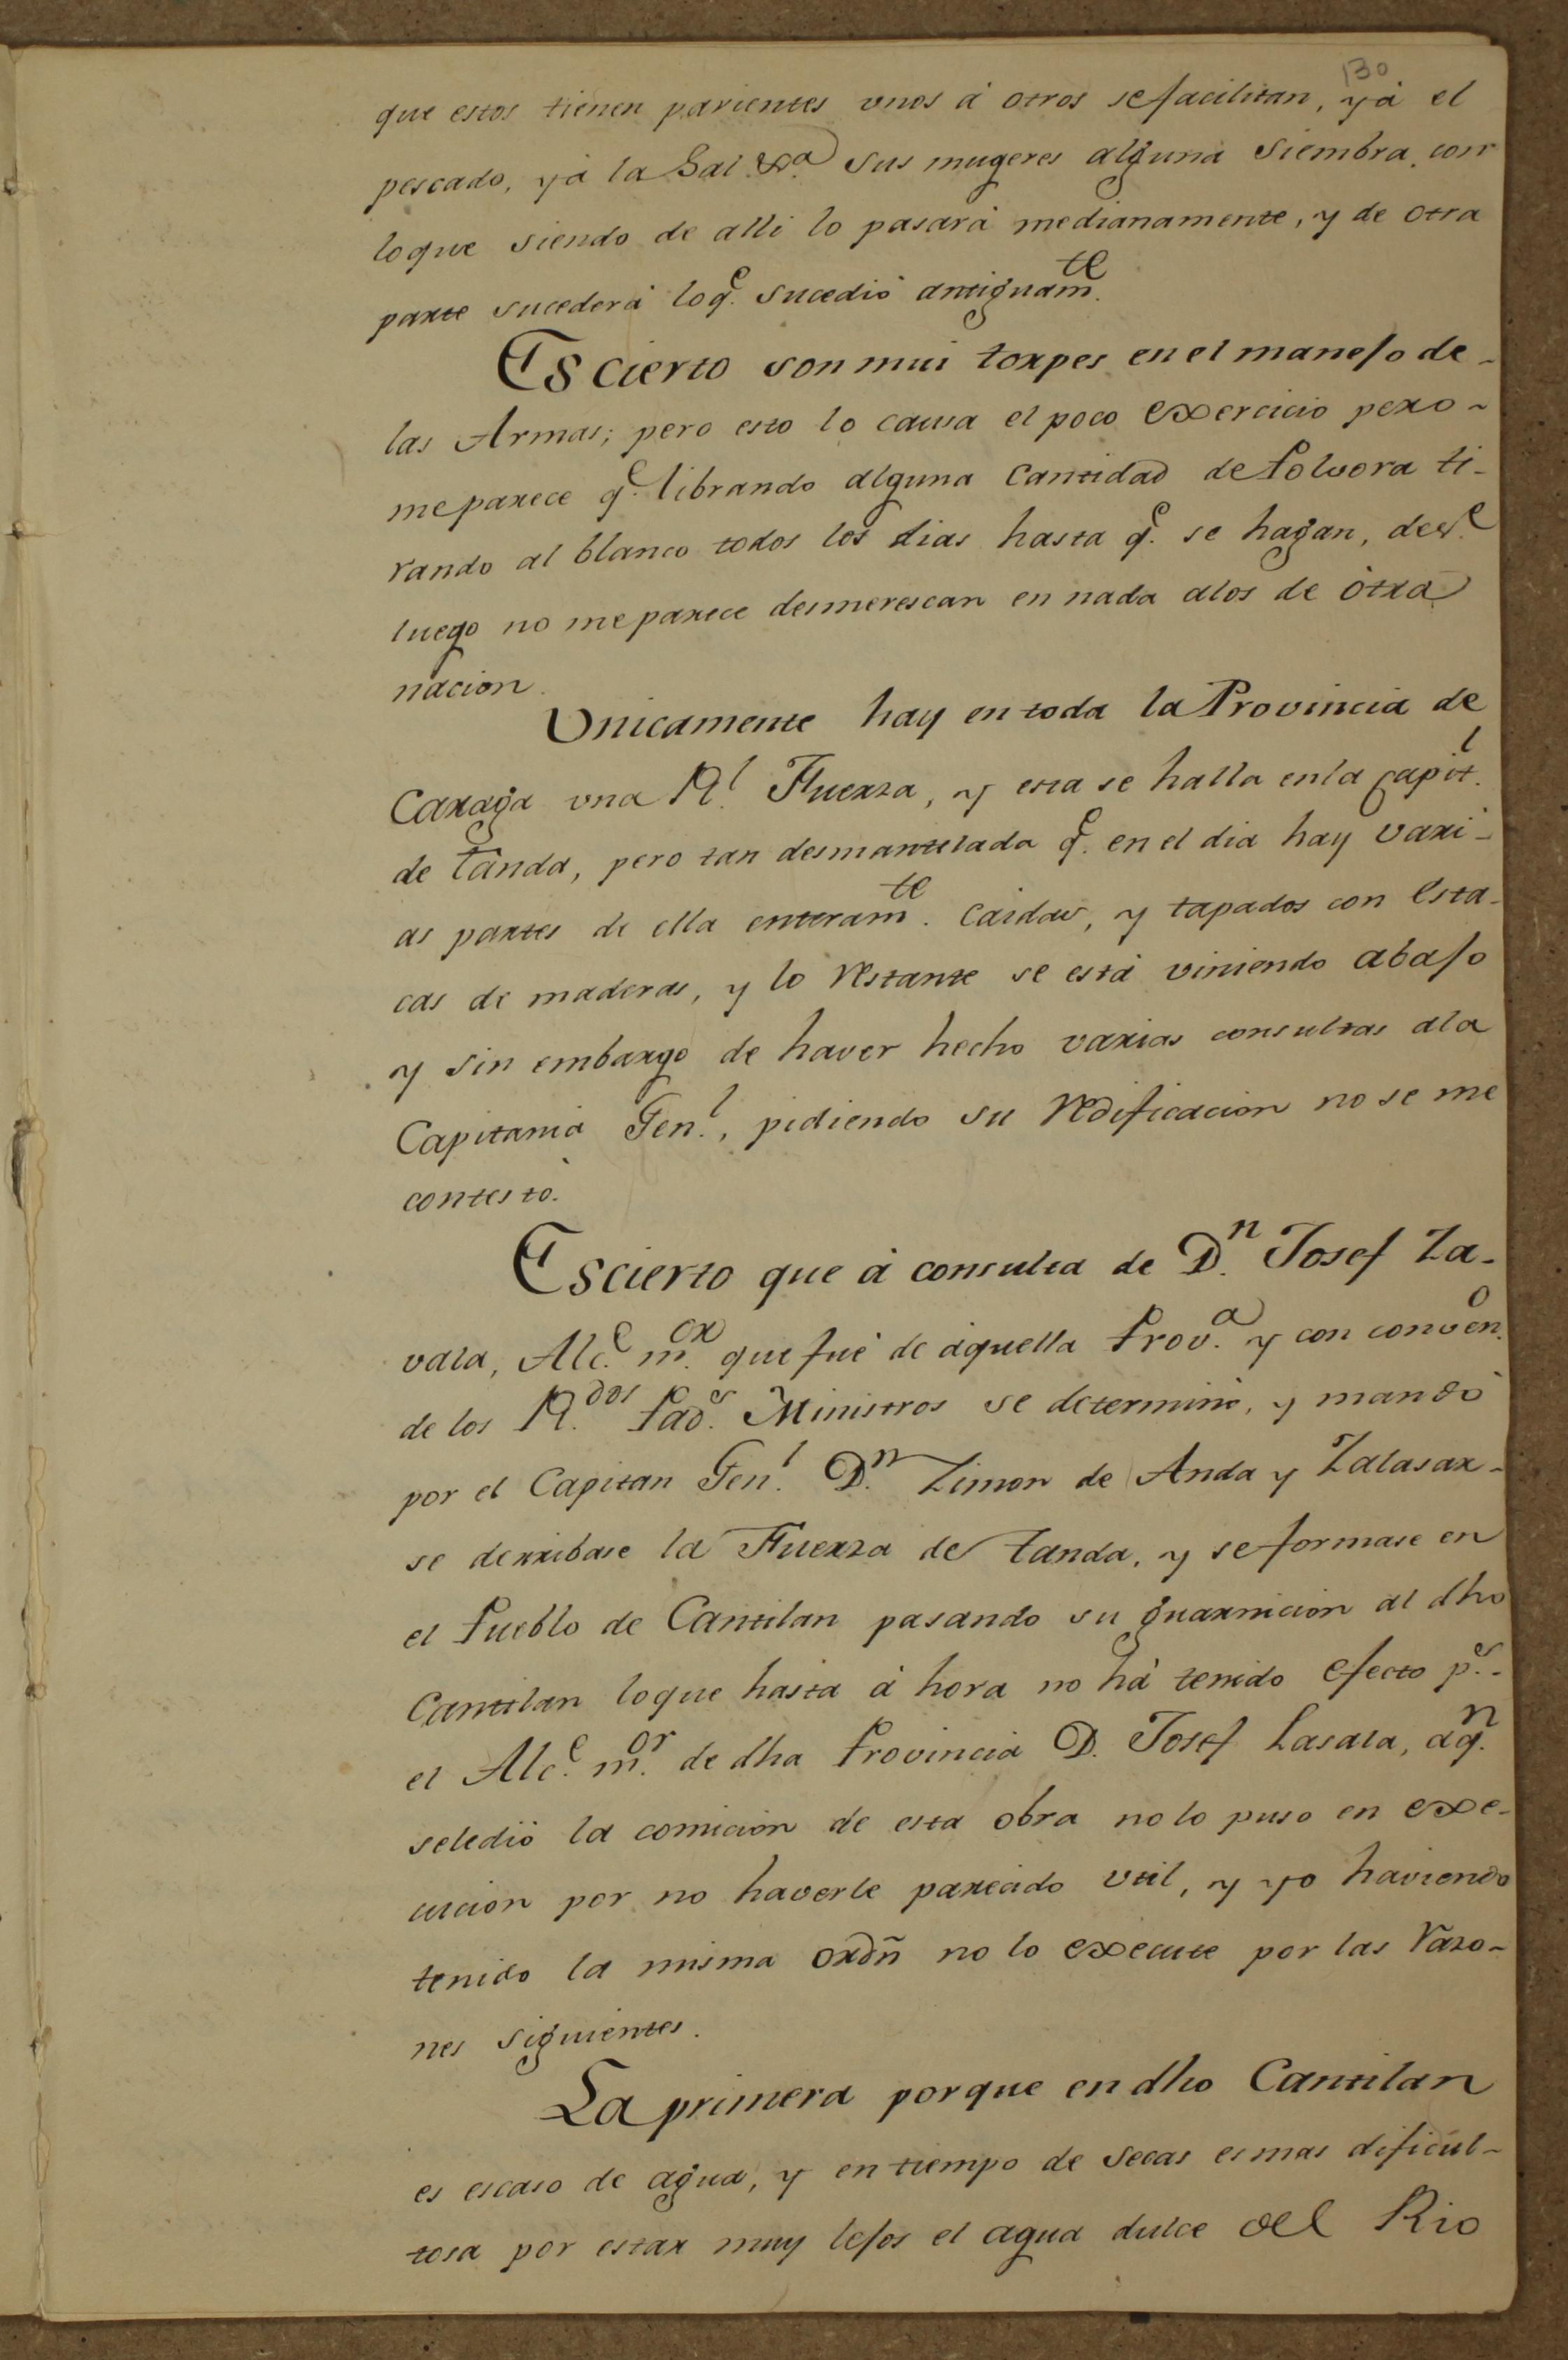 130
que estos tienen parientes unos á otros sefacilitan, yá el
pescado, yá la Sal. &a. Sus mugeres alguna Siembra, con
loque siendo de alli lo pasará medianamente, y de otra
parte sucederá loq.e sucedió antiguam.te
Es cierto son mui torpes en el manejo de-
las Armas; pero esto lo causa el poco exercicio pero-
meparece q.e librando alguna Cantidad de Polvora ti-
rando al blanco todos los dias hasta q.e se hagan, desde
luego no meparece desmerescan en nada alos de otra
nacion.
Unicamente hay en toda la Provincia de
Caraga una R.l Fuerza, y esta se halla en la Capit.l
de Tanda, pero tan desmantelada q.e en el dia hay vari-
as partes de ella enteram.te caidas, y tapados con Esta-
cas de maderas, y lo restante se está viniendo abajo
y sin embargo de haver hecho varias consultas ala
Capitania Gen.l, pidiendo su redificacion no se me
contestó.
Es cierto que á consulta de D.n Josef Za-
vala, Alc.e m.or que fué de aquella Prov.a y con conven.o
de los R.dos Pad.s Ministros se determinó, y mandó
por el Capitan Gen.l D.n Zimon de Anda y Zalasar-
se derribase la Fuerza de Tanda, y se formase en
el Pueblo de Cantilan pasando su guarnicion al dho
Cantilan loque hasta á hora no há tenido efecto p.s-
el Alc.e m.or de dha Provincia D. Josef Lasala, aq.n
seledió la comicion de esta obra no lo puso en exe-
cucion por no haverle parecido util, y yo haviendo
tenido la misma ordñ no lo execute por las razo-
nes siguientes.
La primera porque en dho Cantilan
es escaso de agua, y en tiempo de secas es mas dificul-
tosa por estar muy lejos el agua dulce del Rio